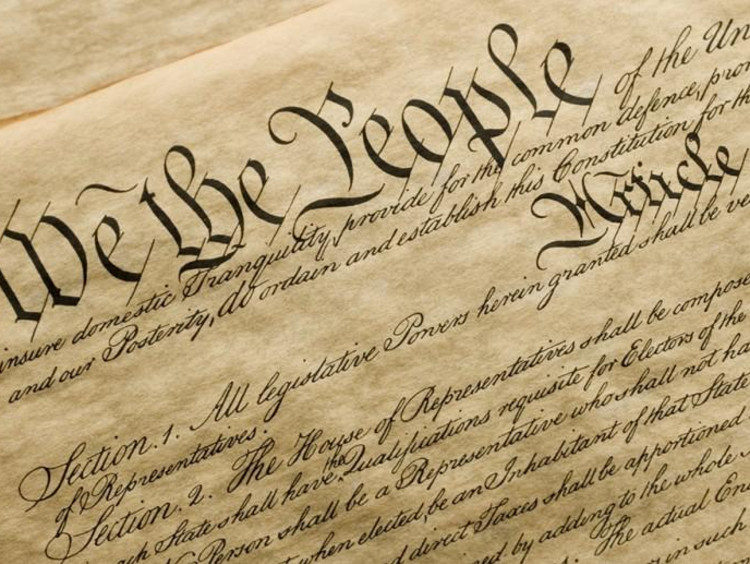 We the People of the Un
insure domestic Tranquility, provide for the common defence, pro
and our Posterity, do ordain and establish this Constitution for th
Article
Section. 1. All legislative Powers herein granted shall be ve
of Representatives.
Section. 2. The House of Representatives shall be compose
ach State shall have the Qualifications requisite for Electors of the
No Person shall be a Representative who shall not ha
when elected, be an Inhabitant of that State
d direct Taxes shall be apportioned
ned by adding to the whole
The actual En
in such